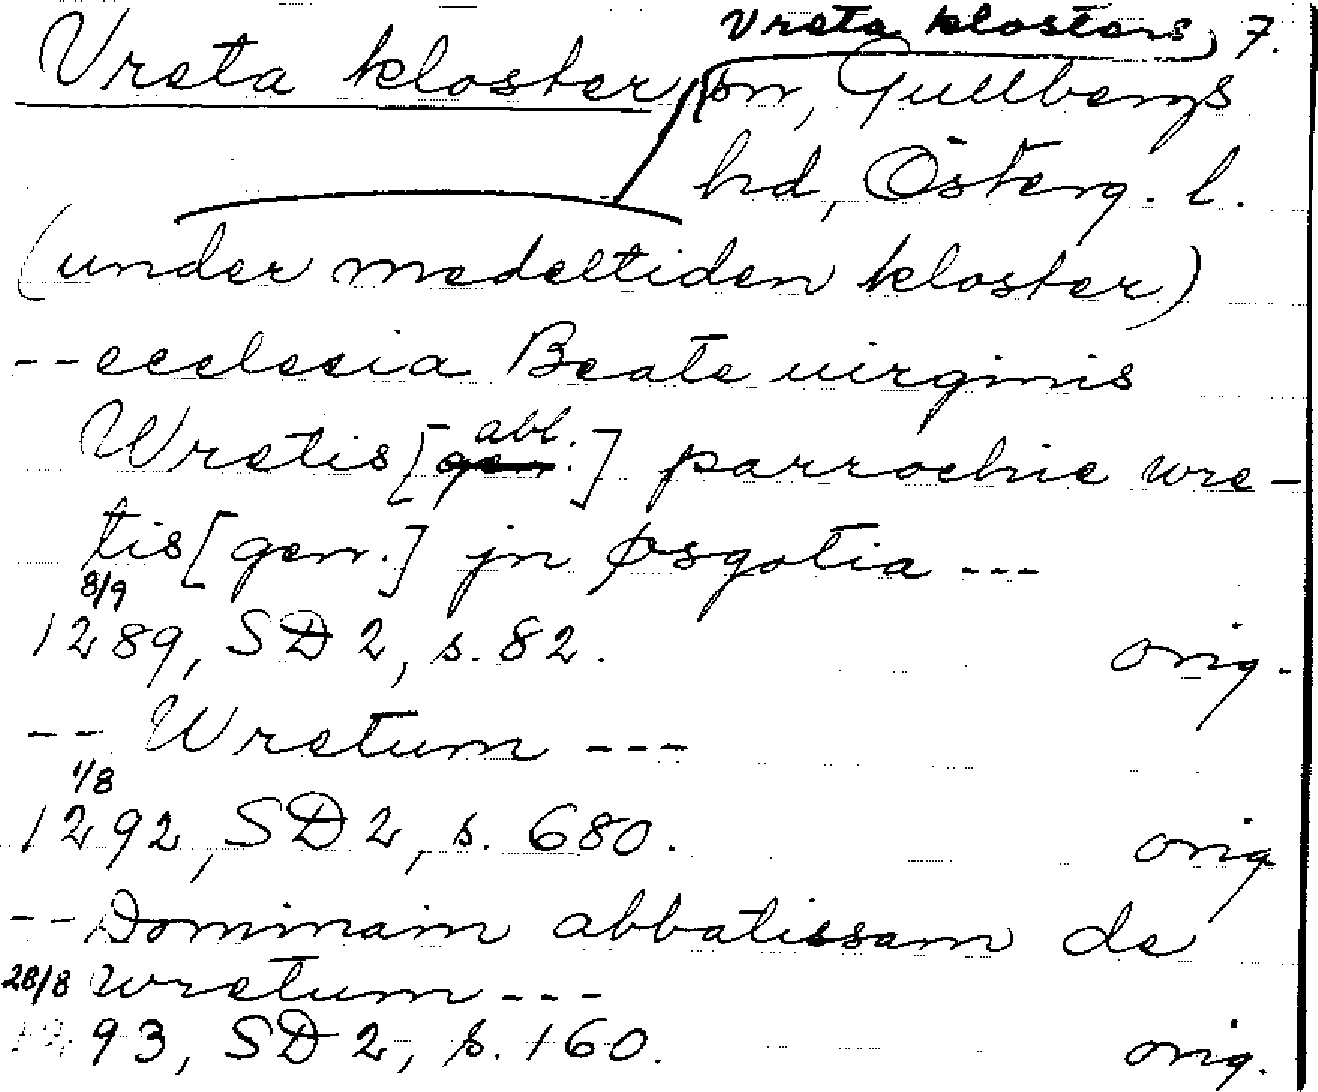 Vreta klosters, 7.
Vreta kloster sn, Gullbergs
hd, Österg. l.
(under medeltiden kloster)
-- ecclesia Beate uirginis
abl.
Wretis [gen.] parrochie wre-
tis [gen.] jn Øsgotia ---
8/9
1289, SD 2, s. 82. orig.
-- Wretum ---
1/8
1292, SD 2, s. 680. orig
-- Dominam abbatissam de
28/8 wretum ---
1293, SD 2, s. 160. orig.